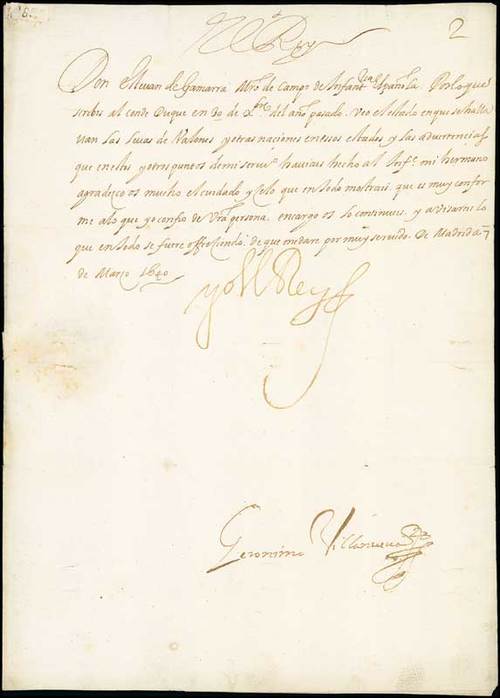 El Rey
2
Don Estevan de Gamarra Mro de Campo de Infantria Española. Por lo que
scribis al conde Duque en 30 de Xre del año pasado. Veo el estado en que se halla
van las Levas de Valones y otras naciones en essos estados, y las advertencias
que en estos y otros puntos de mi servo haviais hecho al Infte mi hermano
agradezcoos mucho el cuidado y celo que en todo mostrais, que es muy confor
me a lo que yo confio de Vra persona. encargo os lo continueis, y avisarme lo
que en todo se fuere offresciendo. de que me dare por muy servido. De Madrid a 7
de Março 1640
yo el Rey
Geronimo Villanueva